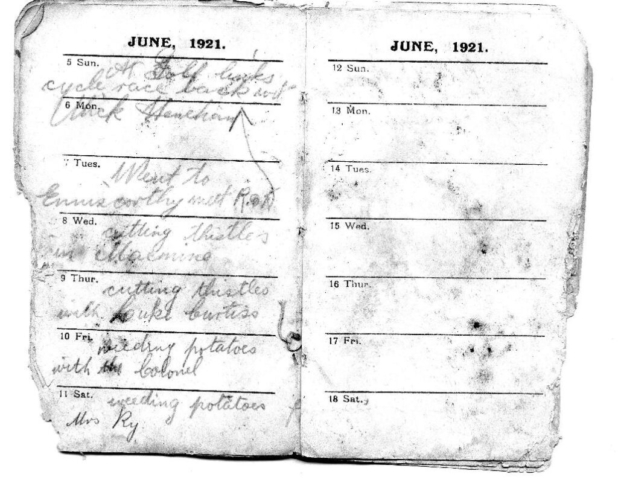 JUNE, 1921.
5 Sun.
At Golf links
cycle race back with
6 Mon.
Mick
7 Tues.
Went to
Enniscorthy met
8 Wed.
cutting thistles
in
9 Thur.
cutting thistles
with Luke Curtiss
10 Fri.
weeding potatoes
with the Colonel
11 Sat.
weeding potatoes
Mrs Ry
JUNE, 1921.
12 Sun.
13 Mon.
14 Tues.
15 Wed.
16 Thur.
17 Fri.
18 Sat.